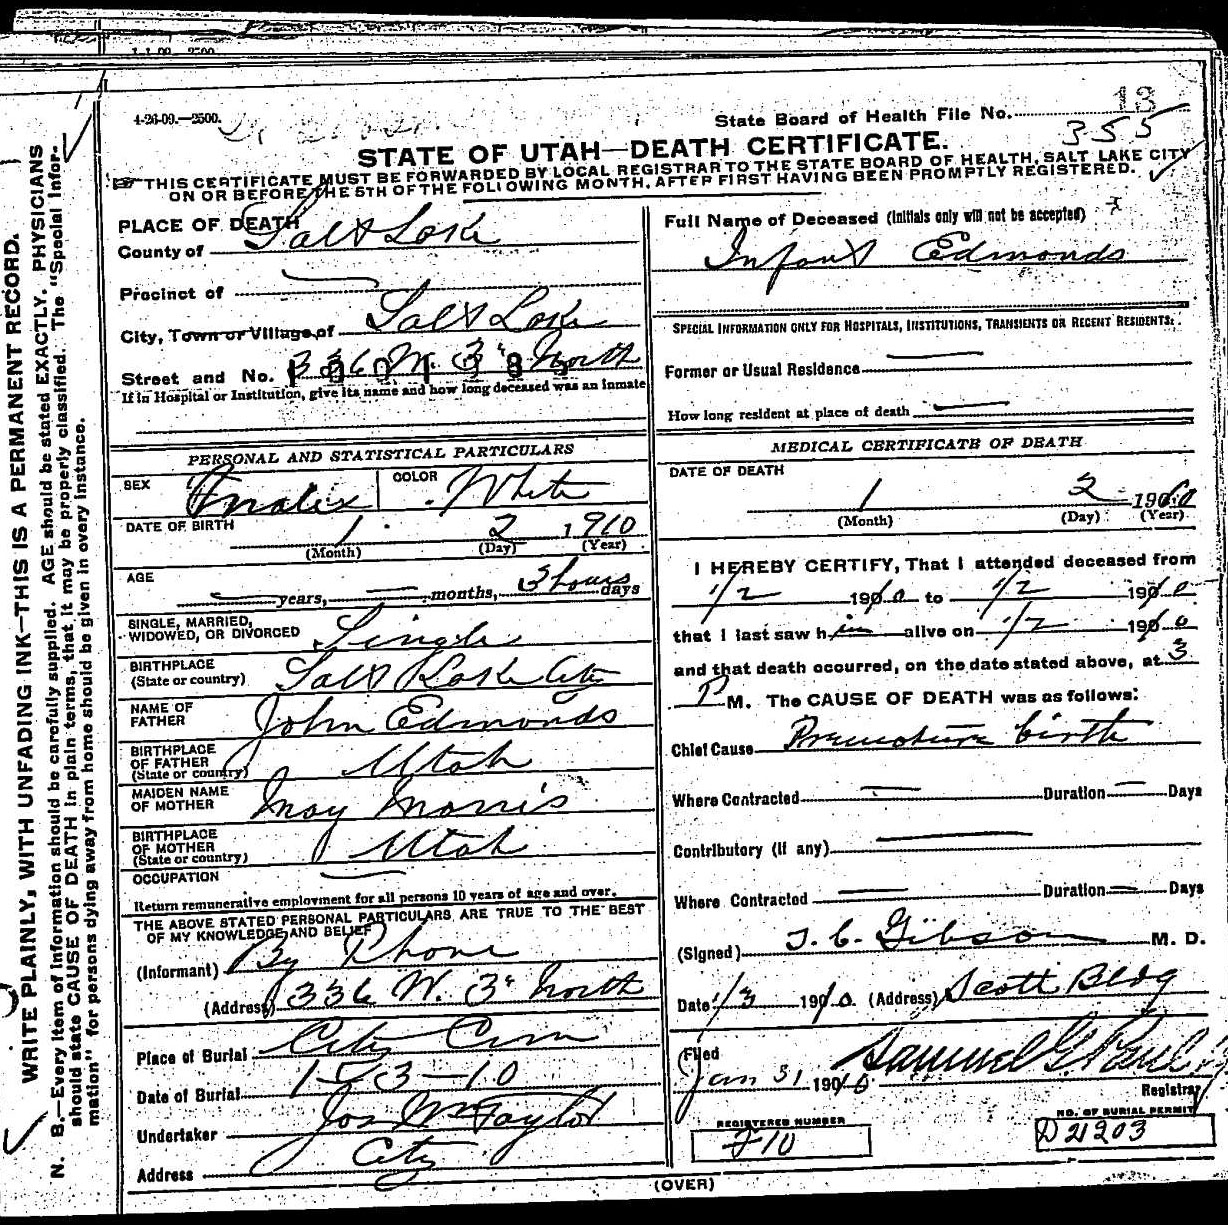 1-1-09-2500
4-26-09.—2500.
State Board of Health File No. 13
355
STATE OF UTAH—DEATH CERTIFICATE.
THIS CERTIFICATE MUST BE FORWARDED BY LOCAL REGISTRAR TO THE STATE BOARD OF HEALTH, SALT LAKE CITY
ON OR BEFORE THE 5TH OF THE FOLLOWING MONTH, AFTER FIRST HAVING BEEN PROMPTLY REGISTERED.
WRITE PLAINLY, WITH UNFADING INK—THIS IS A PERMANENT RECORD.
N. B.—Every item of information should be carefully supplied. AGE should be stated EXACTLY. PHYSICIANS
should state CAUSE OF DEATH in plain terms, that it may be properly classified. The "Special Infor-
mation" for persons dying away from home should be given in every instance.
PLACE OF DEATH
County of Salt Lake
Precinct of —
City, Town or Village of Salt Lake
Street and No. 336 W. 3" North
If in Hospital or Institution, give its name and how long deceased was an inmate
PERSONAL AND STATISTICAL PARTICULARS
SEX
COLOR White
DATE OF BIRTH 1 2 1910
(Month) (Day) (Year)
AGE
— years, — months, 3 hours days
SINGLE, MARRIED,
WIDOWED, OR DIVORCED Single
BIRTHPLACE
(State or country) Salt Lake City
NAME OF
FATHER John Edmonds
BIRTHPLACE
OF FATHER
(State or country) Utah
MAIDEN NAME
OF MOTHER May Morris
BIRTHPLACE
OF MOTHER
(State or country) Utah
OCCUPATION —
Return remunerative employment for all persons 10 years of age and over.
THE ABOVE STATED PERSONAL PARTICULARS ARE TRUE TO THE BEST
OF MY KNOWLEDGE AND BELIEF
(Informant) By Phone
(Address) 336 W. 3" North
Place of Burial City Cem
Date of Burial 1-3-10
Undertaker Jos Wm Taylor
Address City
Full Name of Deceased (Initials only will not be accepted)
Infant Edmonds
SPECIAL INFORMATION ONLY FOR HOSPITALS, INSTITUTIONS, TRANSIENTS OR RECENT RESIDENTS:
Former or Usual Residence —
How long resident at place of death —
MEDICAL CERTIFICATE OF DEATH
DATE OF DEATH
1 2 1910
(Month) (Day) (Year)
I HEREBY CERTIFY, That I attended deceased from
1/2 1910 to 1/2 1910
that I last saw him alive on 1/2 1910
and that death occurred, on the date stated above, at 3
P M. The CAUSE OF DEATH was as follows:
Chief Cause Premature birth
Where Contracted — Duration — Days
Contributory (if any) —
Where Contracted — Duration — Days
(Signed) J. C. Gibson M. D.
Date 1/3 1910. (Address) Scott Bldg
Filed
Jan 31 1910 Samuel G. Paul
Registrar
REGISTERED NUMBER
F10
NO. OF BURIAL PERMIT
D21203
(OVER)